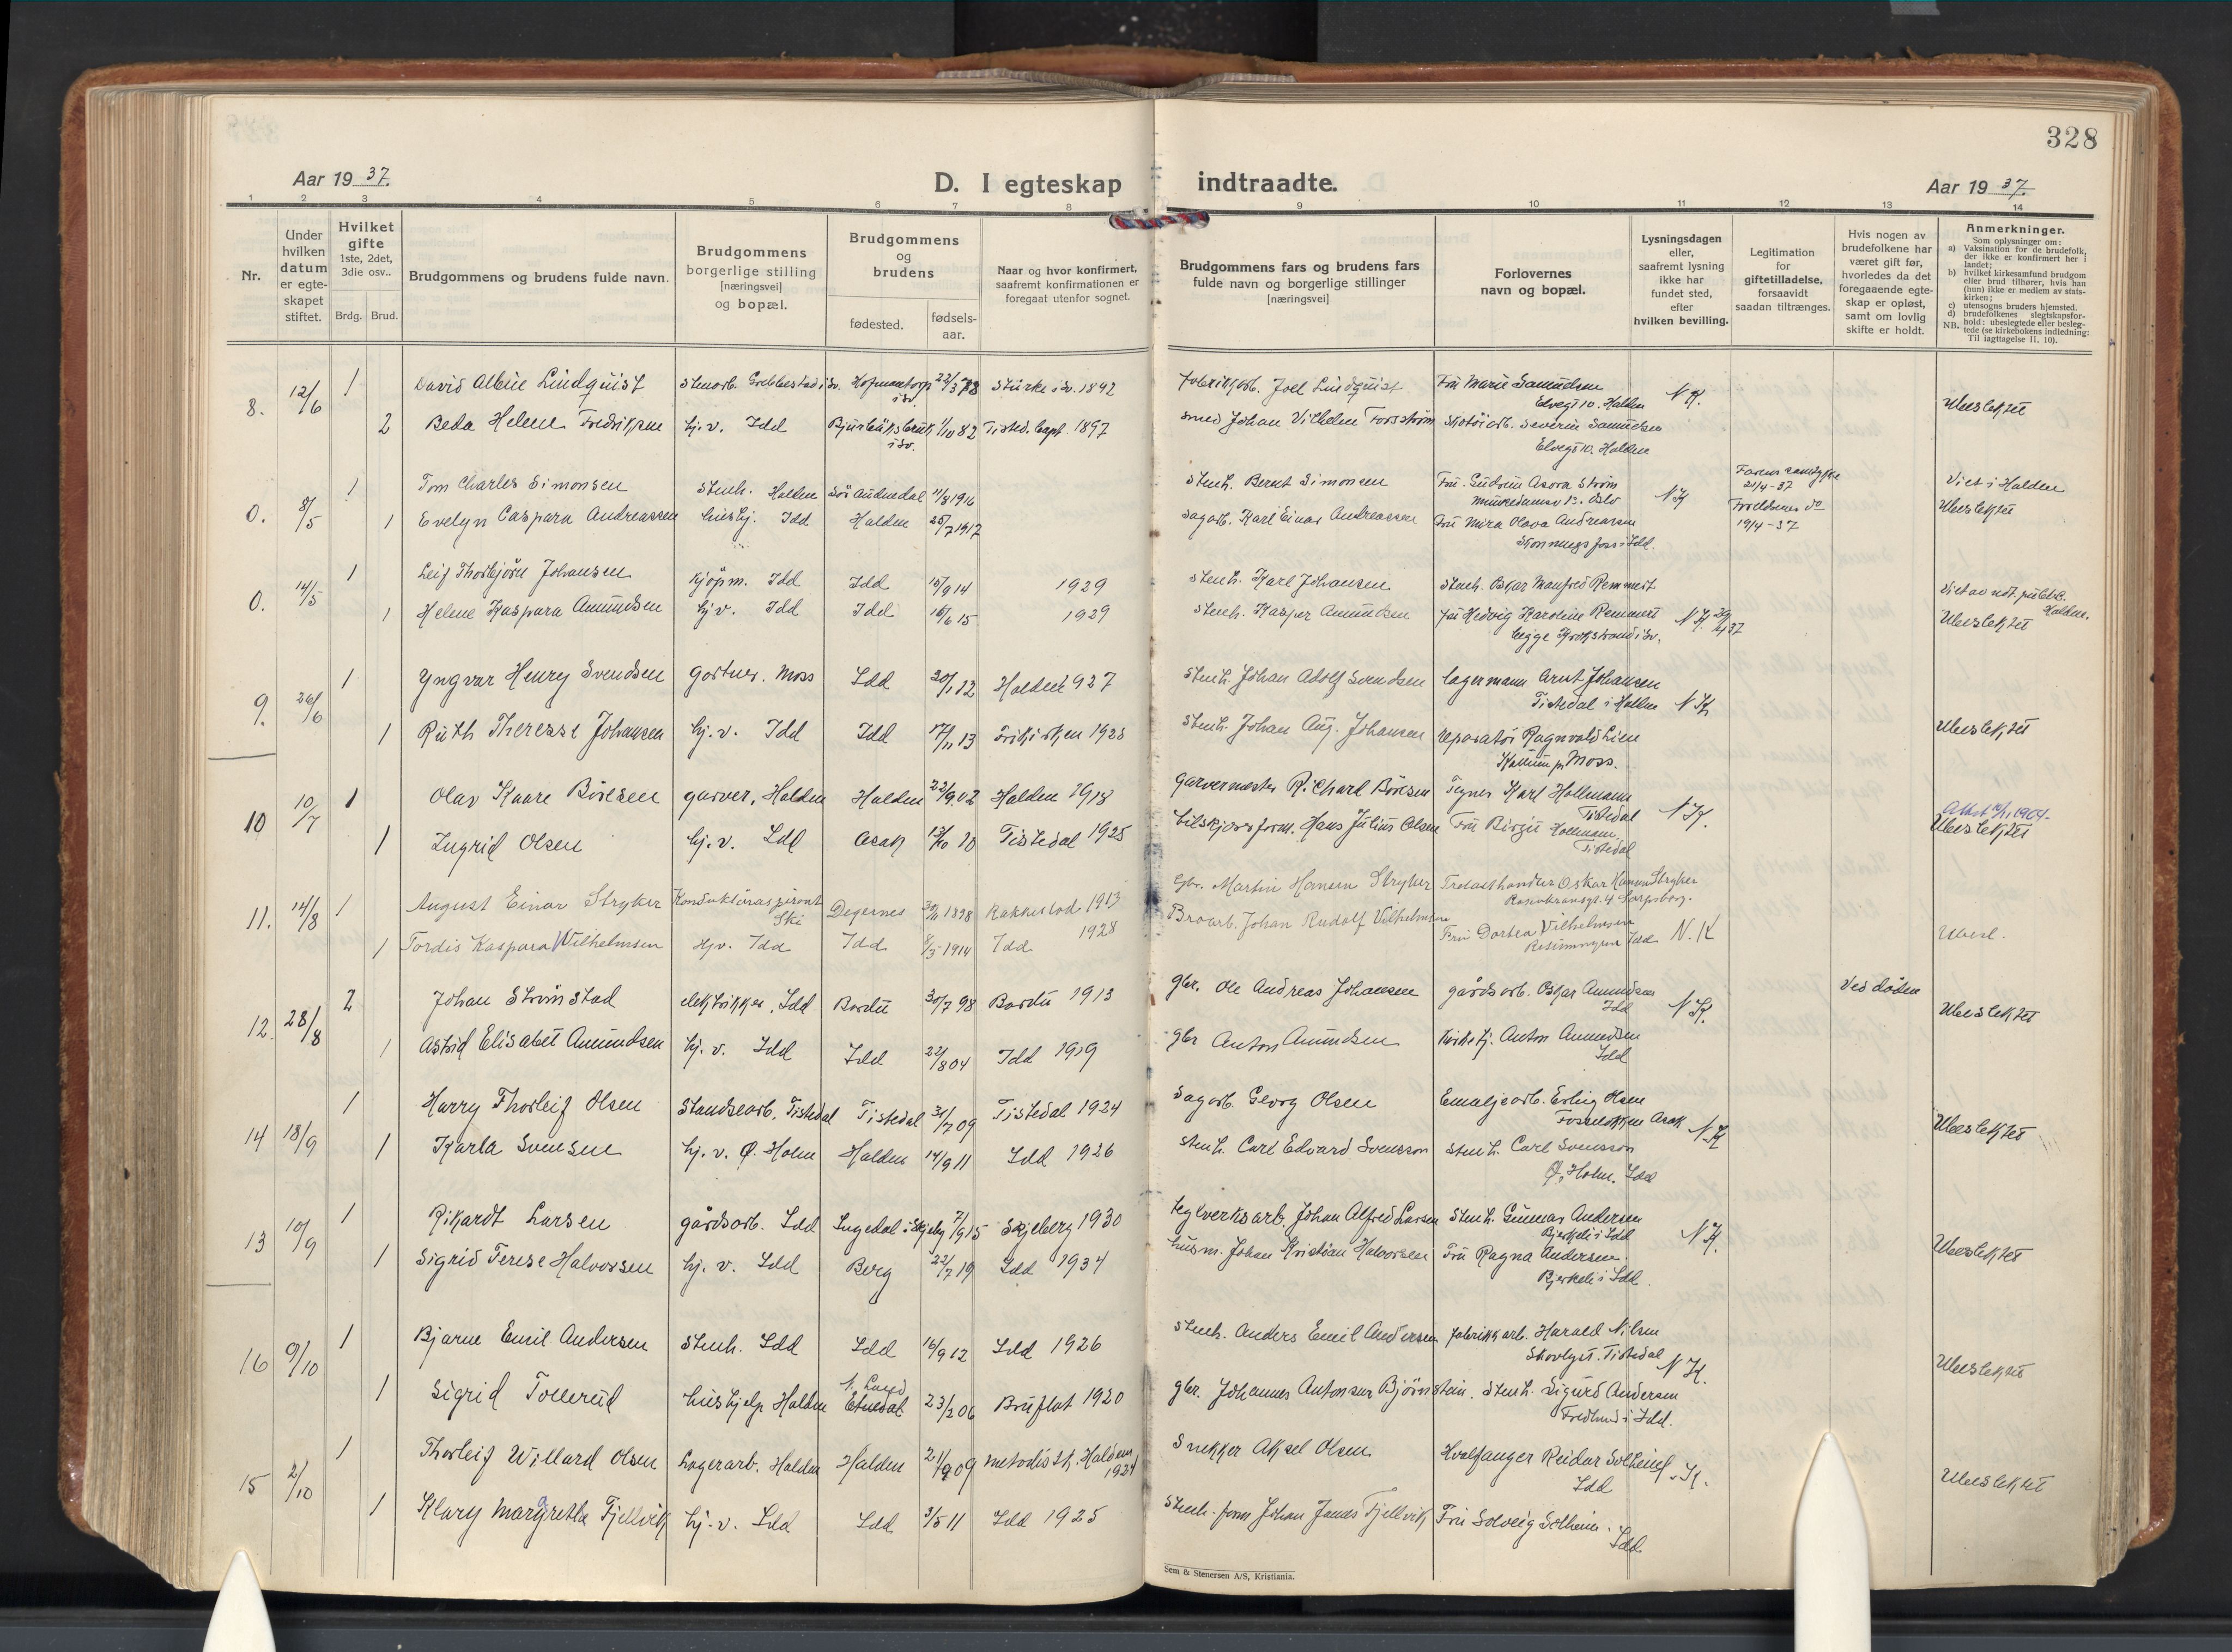 328
Aar 19 37.
D. I egteskap indtraadte.
Aar 19 37.
1 2 3 4 5 6 7 8 9 10 11 12 13 14
Nr.
Under hvilken datum er egteskapet stiftet.
Hvilket gifte 1ste, 2det, 3die osv..
Brdg. Brud.
Brudgommens og brudens fulde navn.
Brudgommens borgerlige stilling [næringsvei] og bopæl.
Brudgommens og brudens
fødested. fødselsaar.
Naar og hvor konfirmert, saafremt konfirmationen er foregaat utenfor sognet.
Brudgommens fars og brudens fars fulde navn og borgerlige stillinger [næringsvei]
Forlovernes navn og bopæl.
Lysningsdagen eller, saafremt lysning ikke har fundet sted, efter hvilken bevilling.
Legitimation for giftetilladelse, forsaavidt saadan tiltrænges.
Hvis nogen av brudefolkene har været gift før, hvorledes da det foregaaende egteskap er opløst, samt om lovlig skifte er holdt.
Anmerkninger.
Som oplysninger om:
a) Vaksination for de brudefolk, der ikke er konfirmert her i landet;
b) hvilket kirkesamfund brudgom eller brud tilhører, hvis han (hun) ikke er medlem av statskirken;
c) utensogns bruders hjemsted.
d) brudefolkenes slegtskapsforhold: ubeslegtede eller beslegtede (se kirkebokens indledning:
NB. Til iagttagelse II. 10).
8. 12/6 1 David Albin Lindquist Stenarb. Grebbestad i Sv. Hofmantorp i Sv. 22/3 78 Sturkö i Sv. 1892 Fabrikkarb. Joel Lindquist Fru Marie Samuelsen Elvegt 10. Halden N.K. Ubeslektet
2 Beda Helene Fredriksen hj. v. Idd Bjurbäksbruk i Sv. 1/10 82 Tisted. kapt. 1897 Smed Johan Vilhelm Forsström Skotöiarb. Severin Samuelsen Elvegt 10. Halden
0. 8/5 1 Tom Charles Simonsen Stenh. Halden Sör Audnedal 11/8 1916 Stenh. Bernt Simonsen Fru Gudrun Asora Ström Oslo N.K. 21/4-37 Viet i Halden
1 Evelyn Caspara Andreassen hushj. Idd Halden 25/7 1917 Sagarb. Karl Einar Andreassen Fru Mira Olava Andreassen i Idd. Foreldrenes do 19/4-37 Ubeslektet
0. 14/5 1 Leif Thorbjörn Johansen Kjöpm. Idd Idd 15/9 14 1929 Stenh. Karl Johansen Stenh. Oskar Manfred Remmert Viet av not. publ. i Halden.
1 Helene Kaspara Amundsen hj. v. Idd Idd 16/6 15 1929 Stenh. Kasper Amundsen Fru Hedvig Karoline Remmert begge Krokstrand i Sv. N.K. 29/4 37 Ubeslektet
9. 26/6 1 Yngvar Henry Svendsen Gartner. Moss Idd 20/1 12 Halden 1927 Stenh. Johan Adolf Svendsen Lagermann Arnt Johansen Tistedal i Halden N.K.
1 Ruth Therese Johansen hj. v. Idd Idd 17/11 13 Frikirken 1928 Stenh. Johan Aug. Johansen Reparatör Ragnvald Lien Kallum pr Moss. Ubeslektet
10 10/7 1 Olav Kaare Böresen garver, Halden Halden 22/9 02 Halden 1918 Garvermester Richard Böresen Tegner Karl Hollmann Tistedal N.K.
1 Ingrid Olsen hj. v. Idd Asak 13/10 10 Tistedal 1925 Hans Julius Olsen Fru Birgit Hollmann Tistedal Ubeslektet
11. 14/8 1 August Einar Stryker Konduktöraspirant Ski Degernes 30/11 1898 Rakkestad 1913 Gbr. Martin Hansen Stryker Trelasthandler Oskar Hansen Stryker Rosenkransgt. 4 Sarpsborg.
1 Tordis Kaspara Vilhelmsen Hjv. Idd Idd 8/5 1914 Idd 1928 Broarb. Johan Rudolf Vilhelmsen Fru Dortea Vilhelmsen Idd N.K Ubesl.
12. 28/8 2 Johan Strömstad elektrikker, Idd Bardu 30/7 98 Bardu 1913 gbr. Ole Andreas Johansen gårdsarb. Oskar Amundsen Idd N.K. Ved döden Ubeslektet
1 Astrid Elisabet Amundsen hj. v. Idd Idd 22/8 04 Idd 1919 gbr Anton Amundsen kirketj. Anton Amundsen Idd
14 18/9 1 Harry Thorleif Olsen Standsearb. Tistedal Tistedal 31/7 09 Tistedal 1924 Sagarb. Georg Olsen Emaljearb. Erling Olsen Fosselökken Asak N.K. Ubeslektet
1 Karla Svensen hj. v. Ø. Holm Halden 14/9 11 Idd 1926 Stenh. Carl Edvard Svensson Stenh. Carl Svensson Ø. Holm. Idd
13 10/9 1 Rikardt Larsen gårdsarb. Idd Ingedal i Skjeberg 7/9 15 Skjeberg 1930 Teglverksarb. Johan Alfred Larsen Stenh. Gunnar Andersen Bjerkeli i Idd N.K.
1 Sigrid Terese Halvorsen hj. v. Idd Berg 22/7 19 Idd 1934 husm. Johan Kristian Halvorsen Fru Ragna Andersen. Bjerkeli i Idd. Ubeslektet
16 9/10 1 Bjarne Emil Andersen Stenh. Idd Idd 16/9 12 Idd 1926 Stenh. Anders Emil Andersen Fabrikkarb. Harald Nilsen Tistedal N.K. Ubeslektet
1 Sigrid Tollerud hushjelp Halden N. Land Etnedal 23/2 06 Bruflat 1920 gbr. Johannes Antonsen Björnstein. Stenh. Sigurd Andersen Fredlund i Idd.
15 2/10 1 Thorleif Willard Olsen Lagerarb. Halden Halden 21/9 09 Metodistk. Halden 1924 Snekker Aksel Olsen Hvalfanger Reidar Solheim Idd N.K. Ubeslektet
1 Klary Margretha Fjellvik hj. v. Idd Idd 3/5 11 Idd 1925 Stenh. form. Johan James Fjellvik Fru Solveig Solheim. Idd.
Sem & Stenersen A/S, Kristiania.